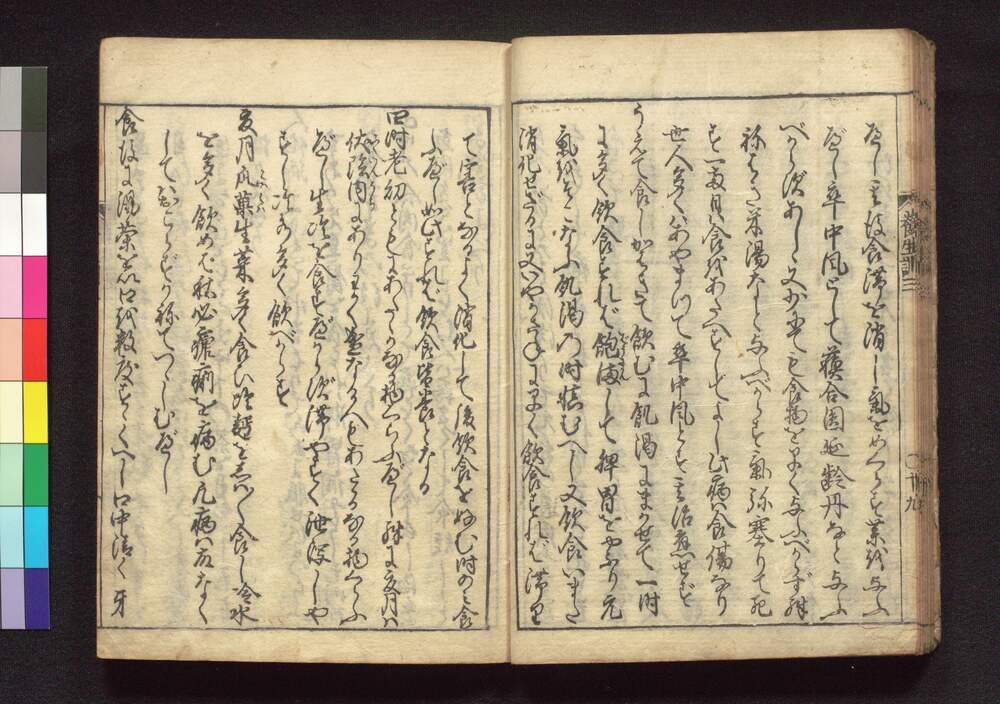 べし主として食滞を消し気をめぐらす薬を与ふ
べし卒中風として蘇合円延齢丹など与ふ
べからずあしし又少にても食物を早く与ふべからず殊
ねばきこめ湯など与ふべからず気弥塞りて死
す一両日食をあたへずしてよし此病は食傷なり
世人多くはあやまりて卒中風とす其治応ぜず
うえて食しかはきて飲むに飢渇にまかせて一時
に多く飲食すれば飽満して脾胃をやぶり元
気をそこなふ飢渇の時慎むべし又飲食いまだ
消化せざるに又いやかさねに早く飲食すれば滞り
養生訓三
十九
て害となるよく消化して後飲食を好む時のみ食
ふべし如此すれば飲食皆養となる
四時老幼ともにあたたかなる物くらふべし殊に夏月は
伏陰内にありわかく盛なる人もあたたかなる物くらふ
べし生冷を食すべからず滞やすく泄瀉しや
すし冷水多く飲べからず
夏月瓜菓生菜多く食ひ冷麪をしばしば食し冷水
を多く飲めば秋必瘧痢を病む凡病は故なく
してはおこらずかねてつつしむべし
食後に湯茶を以口を数度すすぐべし口中清く牙